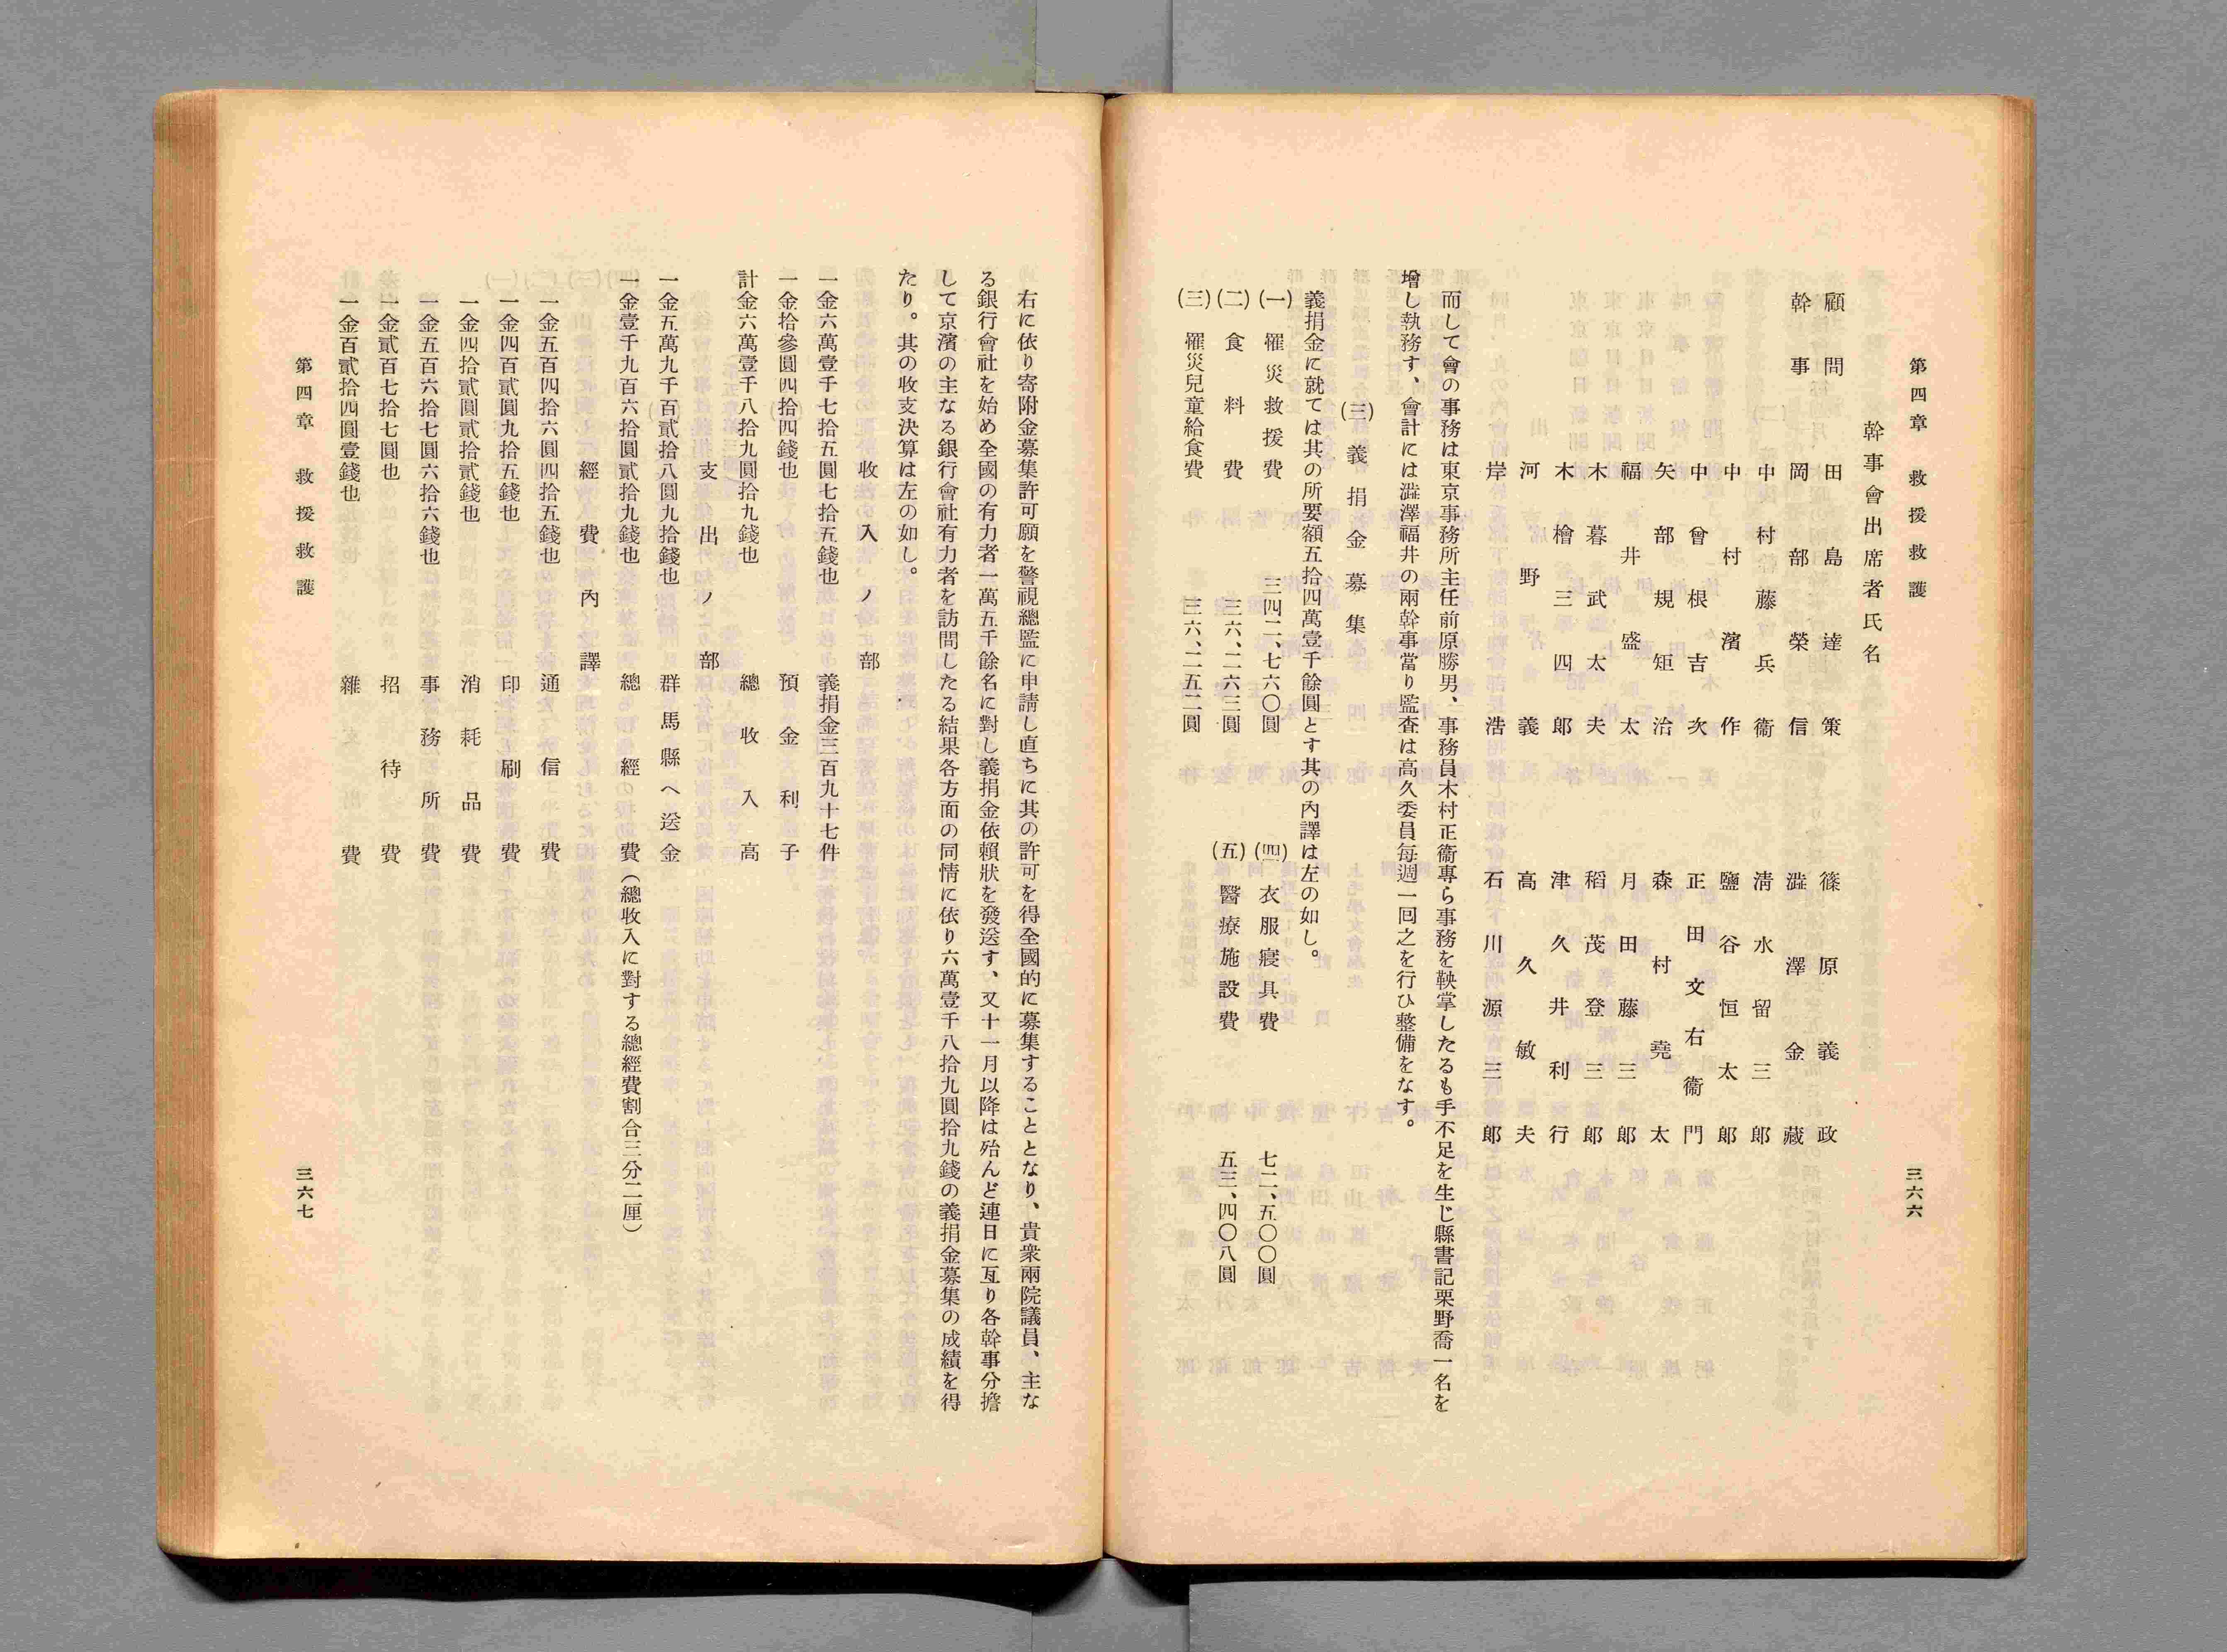 第四章　救援救護
三六六
幹事會出席者氏名
顧問　田島達策　篠原義政
幹事　岡部榮信　澁澤金藏
中村藤兵衞　淸水留三郞
中村濱作　鹽谷恒太郞
中曾根吉次　正田文右衞門
矢部規矩治　森村堯太
福井盛太　月田藤三郞
木暮武太夫　稻茂登三郞
木檜三四郞　津久井利行
河野義　高久敏夫
岸浩　石川源三郞
而して會の事務は東京事務所主任前原勝男、事務員木村正衞專ら事務を鞅掌したるも手不足を生じ縣書記栗野喬一名を
增し執務す、會計には澁澤福井の兩幹事當り監査は高久委員每週一回之を行ひ整備をなす。
(三)義捐金募集
義捐金に就ては其の所要額五拾四萬壹千餘圓とす其の內譯は左の如し。
(一)罹災救援費　三四二、七六〇圓　(四)衣服寢具費　七二、五〇〇圓
(二)食料費　三六、二六三圓　(五)醫療施設費　五三、四〇八圓
(三)罹災兒童給食費　三六、二五二圓
右に依り寄附金募集許可願を警視總監に申請し直ちに其の許可を得全國的に募集することとなり、貴衆兩院議員、主な
る銀行會社を始め全國の有力者一萬五千餘名に對し義捐金依賴狀を發送す、又十一月以降は殆んど連日に亙り各幹事分擔
して京濱の主なる銀行會社有力者を訪問したる結果各方面の同情に依り六萬壹千八拾九圓拾九錢の義捐金募集の成績を得
たり。其の收支決算は左の如し。
收入ノ部
一金六萬壹千七拾五圓七拾五錢也　義捐金三百九十七件
一金拾參圓四拾四錢也　預金利子
計金六萬壹千八拾九圓拾九錢也　總收入高
支出ノ部
一金五萬九千百貳拾八圓九拾錢也　群馬縣へ送金
一金壹千九百六拾圓貳拾九錢也　總經費（總收入に對する總經費割合三分二厘）
經費內譯
一金五百四拾六圓四拾五錢也　通信費
一金四百貳圓九拾五錢也　印刷費
一金四拾貳圓貳拾貳錢也　消耗品費
一金五百六拾七圓六拾六錢也　事務所費
一金貳百七拾七圓也　招待費
一金百貳拾四圓壹錢也　雜費
第四章　救援救護
三六七